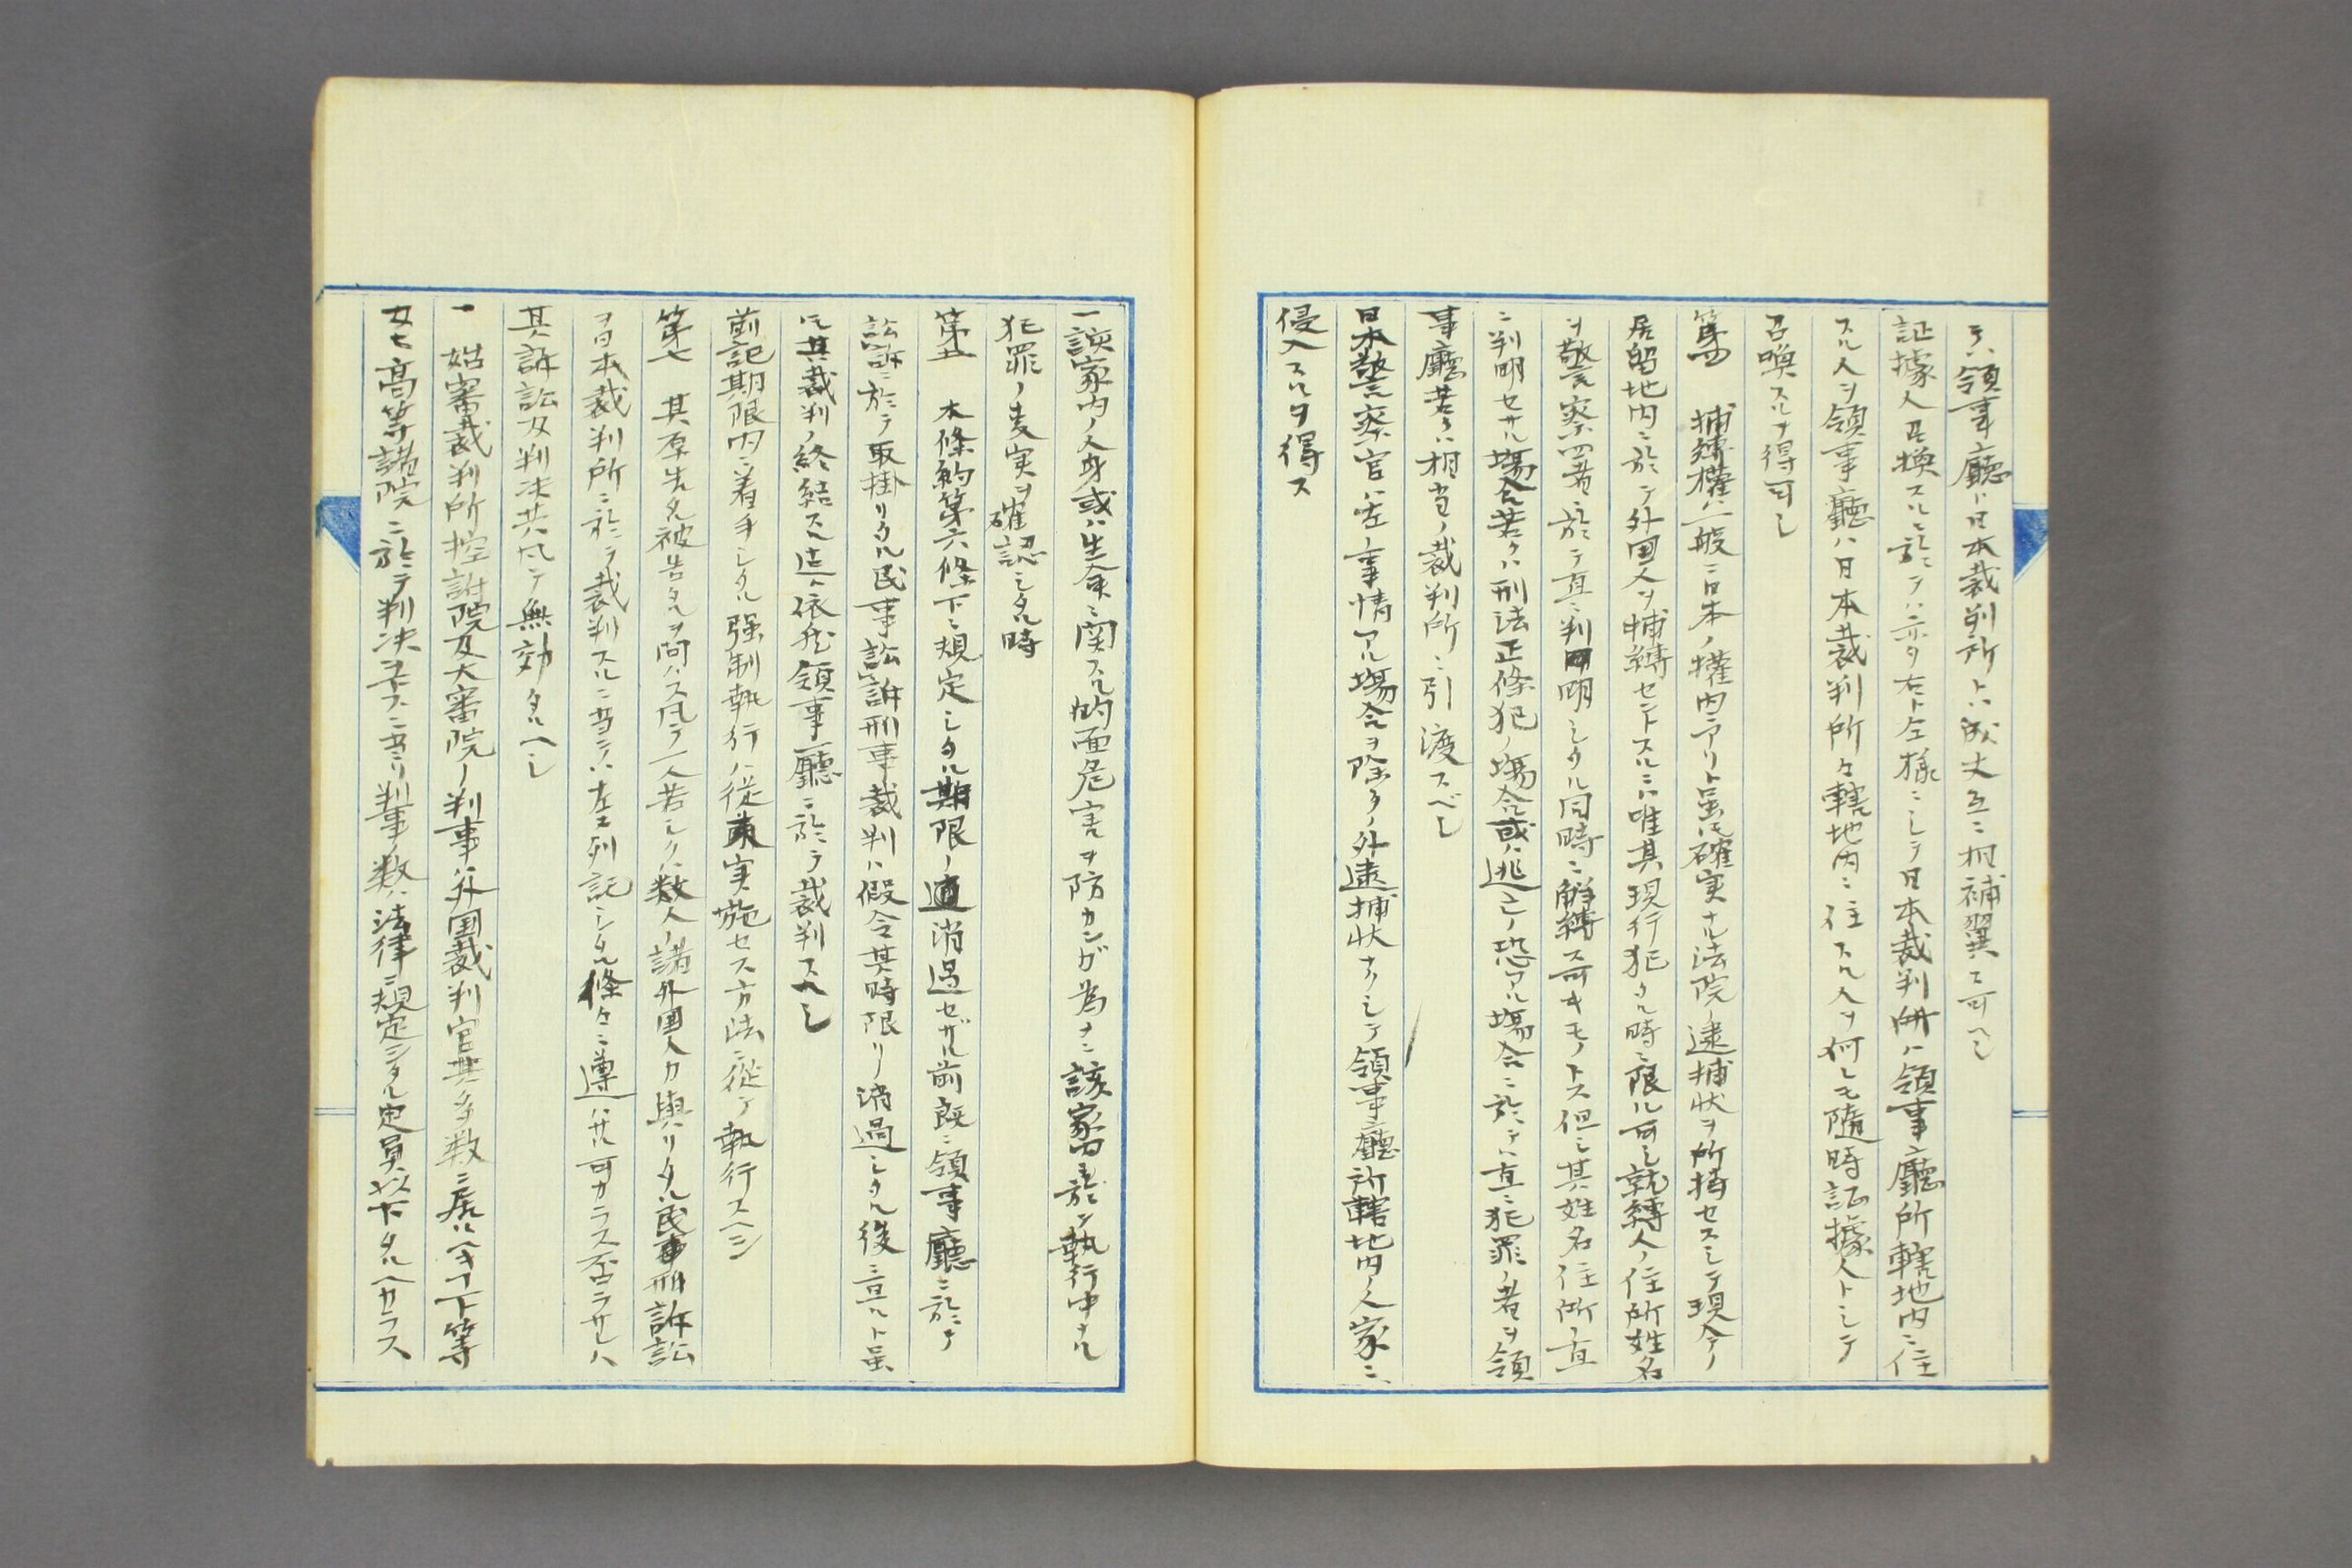 テハ領事廳ト日本裁判所トハ成丈互ニ相補翼ス可ヘシ
証據人呼換スルニ於テハ亦タ右ト仝様ニシテ日本裁判所ハ領事廳所轄地内ニ住
スル人ヲ領事廳ハ日本裁判所々轄地内ニ住スル人ヲ何レモ隨時証據人トシテ
召喚スルヲ得可シ
第四 捕縛權ハ一般ニ日本ノ權内ニアリト虽𪜈確実ナル法院ノ逮捕状ヲ所持セスシテ現今ノ
居留地内ニ於テ外国人ヲ捕縛セントスルニハ唯其現行犯タル時ニ限ル可シ就縛人ノ住所姓名
ヲ警察署ニ於テ直ニ判明シタル同時ニ解縛ス可キモノトス但シ其姓名住所ノ直
ニ判明セサル場合若クハ刑法正條犯ノ場合或ハ逃亡ノ恐アル場合ニ於テハ直ニ犯罪ノ者ヲ領
事廳若クハ相当ノ裁判所ニ引渡スベシ
日本警察官ハ左ノ事情アル場合ヲ除クノ外逮捕状ナクシテ領事廳所轄地内ノ人家ニ
侵入スルヲ得ス
一該家内ノ人身或ハ生命ニ関スル的面危害ヲ防カンガ為ナニ該家内ニ於テ執行中ナル
犯罪ノ事実ヲ確認シタル時
第五 本條約第六條下ニ規定シタル期限ノ消過セザル前既ニ領事廳ニ於テ
訟訴ニ於テ取掛リタル民事訟訴刑事裁判ハ假令其時限リ消過シタル後ニ亘ルト虽
𪜈其裁判ノ終結スル迄ハ依然領事廳ニ於テ裁判スヘシ
前記期限内ニ着手シタル强制執行ハ従来実施セス方法ニ従テ執行スヘシ
第七 其原告タル被告タルヲ問ハス凡テ一人若シクハ数人ノ諸外国人カ與リタル民事刑訴訟
ヲ日本裁判所ニ於テ裁判スルニ當テハ左ニ列記シタル條々ニ遵ハサル可カラス否ラサレハ
其訴訟及判决共凡テ無効タルヘシ
一 始審裁判所控訴院及大審院ノ判事ハ外国裁判官其多数ニ居ルヘキコ下等
及ヒ高等諸院ニ於テ判决ヲ下スニ當リ判事ノ数ハ法律ニ規定シタル定員以下タルヘカラス